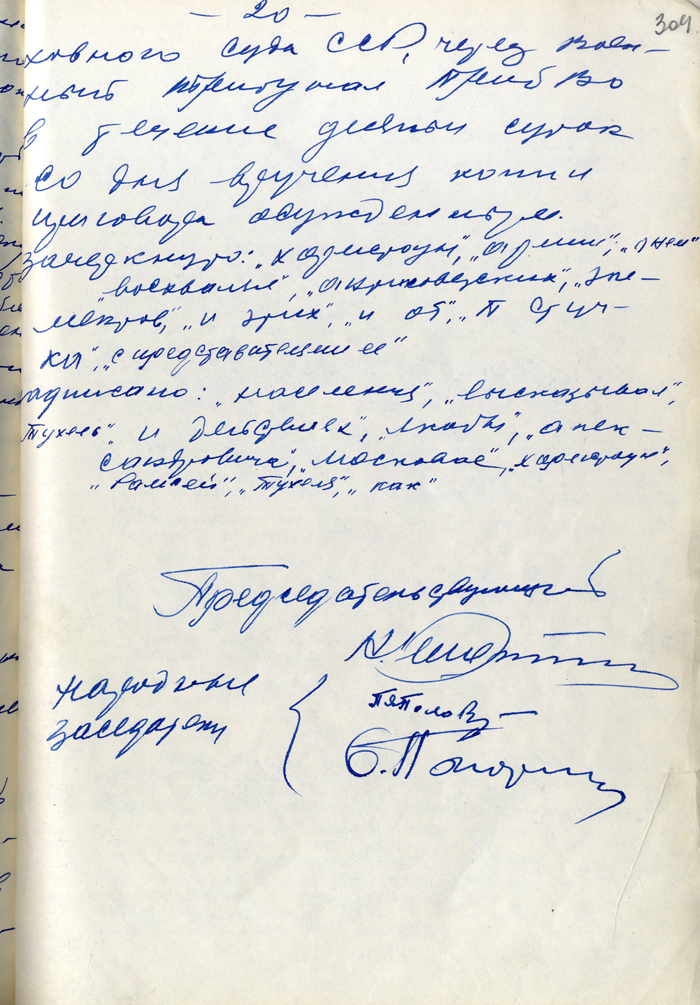 — 20 —
304.
ховного суда ССР, через воен-
ный трибунал ПрибВО
в течение десяти суток
со дня вручения копии
приговора осужденным.
Зачеркнуто: „характеры", „армии",
„восхвалял", „эле-
ментов", „и эрих", „и об", „П Стуч-
ки", „с представителями ее"
адписано: „населения", „высказывал",
Тухель", и действиях", „Любы", „алек-
сандровича", „московов", „характеры",
„Рамсей", „Тухеля", „как"
Председательствующий
Народные
заседатели